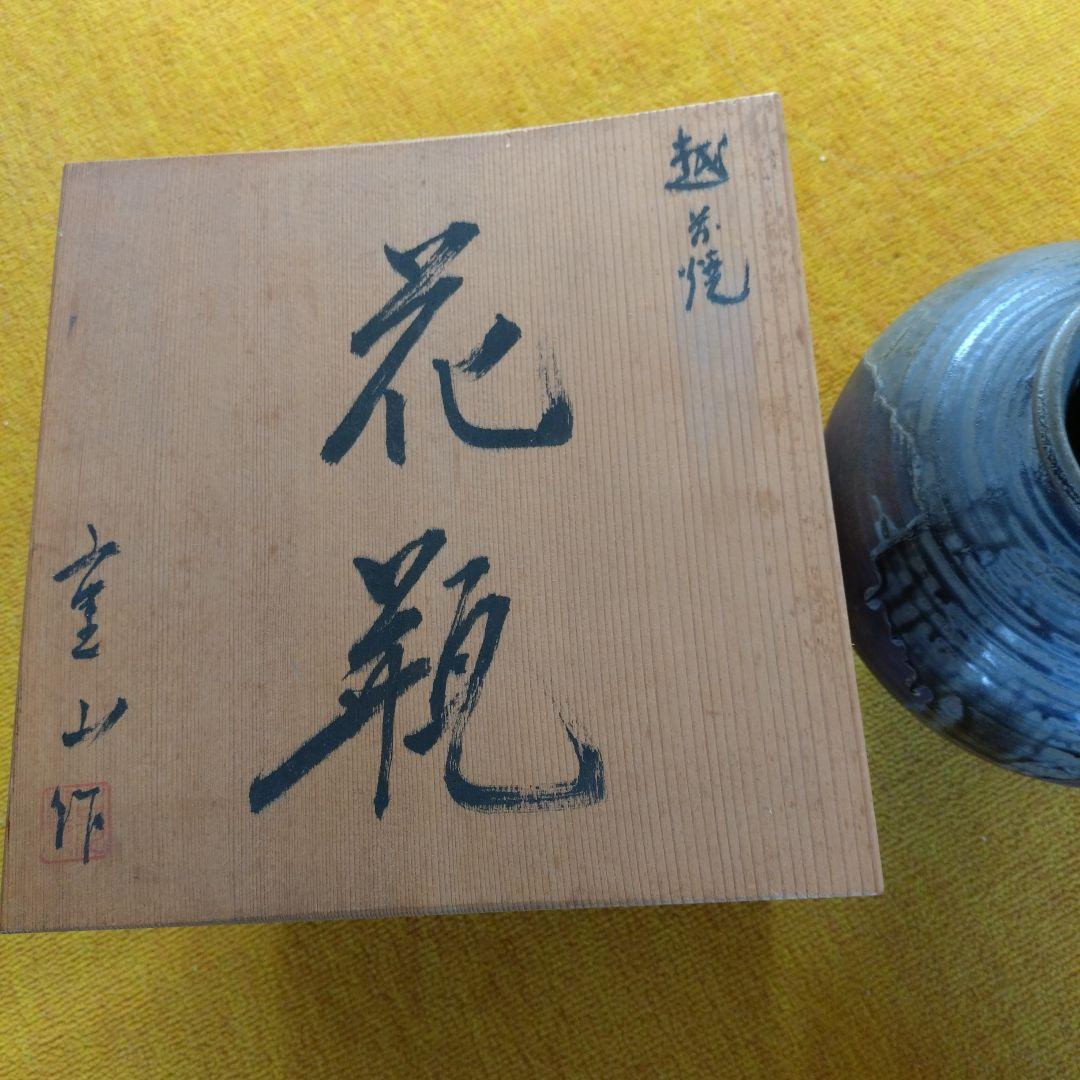 越前焼
花瓶
重山作